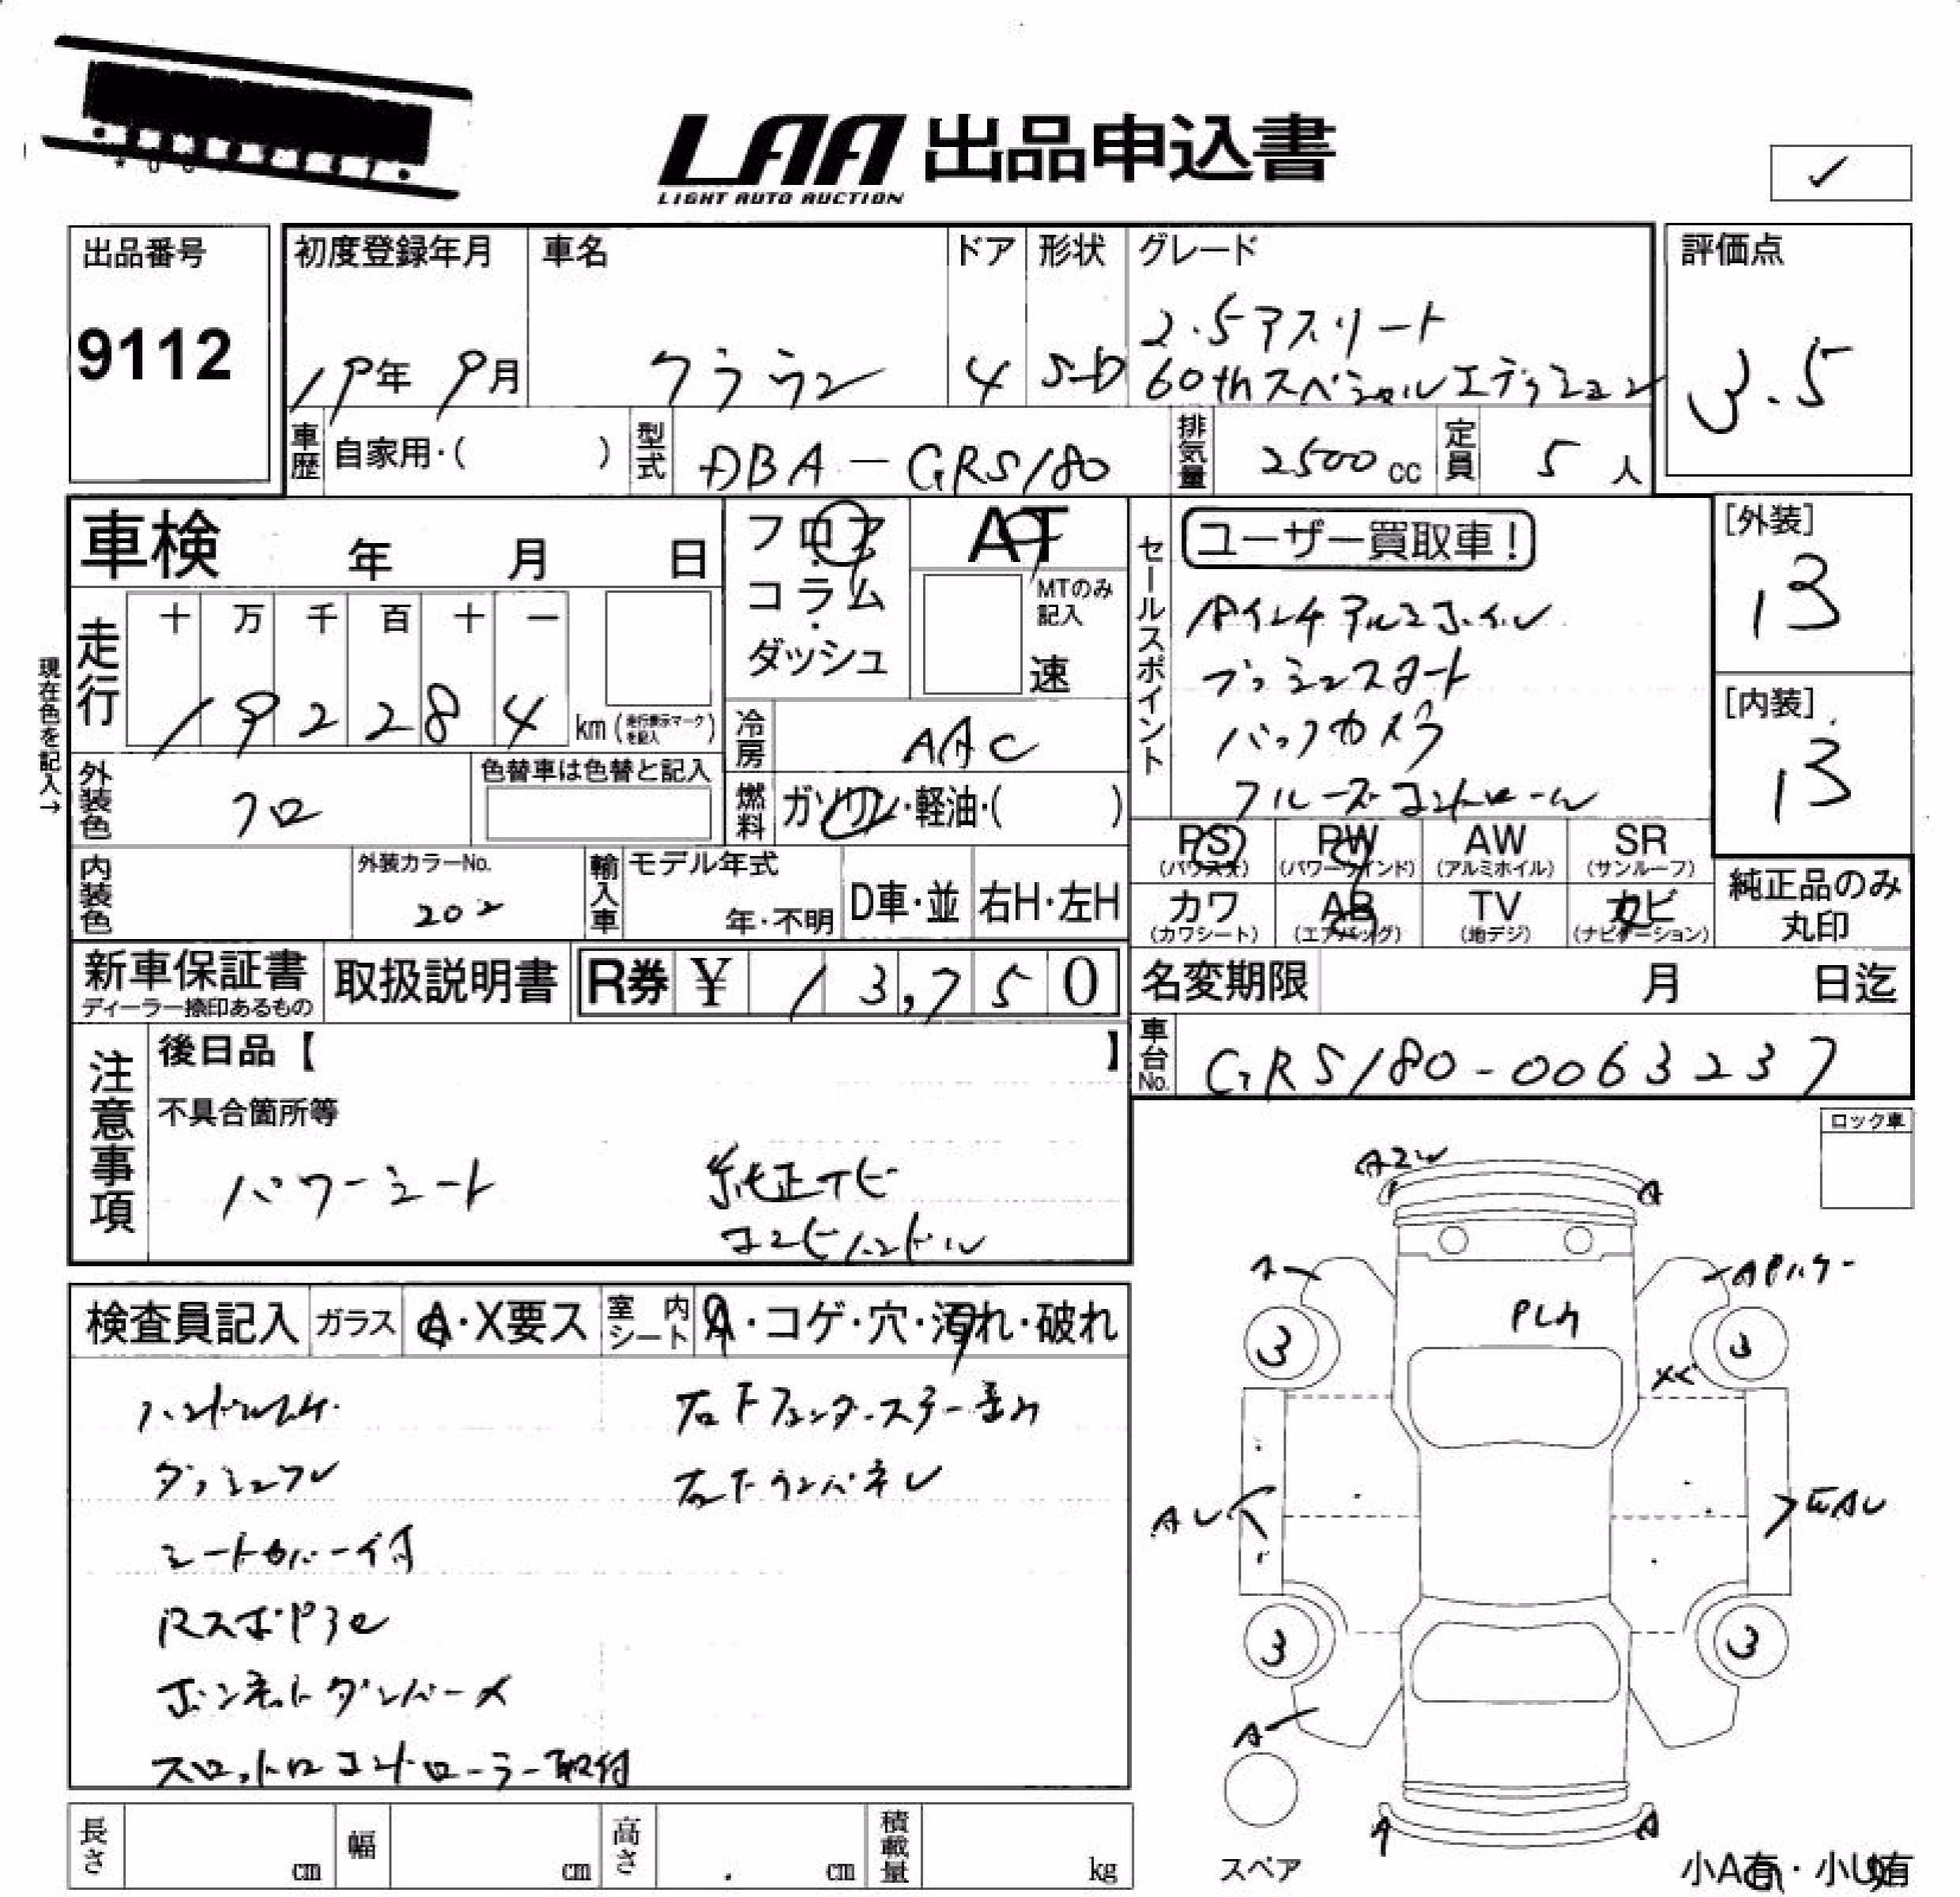 LAA 出品申込書
LIGHT AUTO AUCTION
✓
出品番号
9112
初度登録年月
19年 9月
車名
クラウン
ドア
4
形状
S-D
グレード
2.5アスリート
60thスペシャルエディション
評価点
3.5
車歴
自家用・( )
型式
DBA-GRS180
排気量
2500cc
定員
5人
車検 年 月 日
フロア
・
コラム
・
ダッシュ
AT
MTのみ
記入
速
セールスポイント
ユーザー買取車!
18インチアルミホイル
プッシュスタート
バックカメラ
クルーズコントロール
[外装]
13
[内装]
13
現在色を記入→
走行
十 万 千 百 十 一
1 9 2 2 8 4 km (走行表示マークを記入)
冷房
AAC
外装色
クロ
色替車は色替と記入
燃料
ガソリン・軽油・( )
PS
(パワステ)
PW
(パワーウインド)
AW
(アルミホイル)
SR
(サンルーフ)
内装色
外装カラーNo.
202
輸入車
モデル年式
年・不明
D車・並
右H・左H
カワ
(カワシート)
AB
(エアバッグ)
TV
(地デジ)
ナビ
(ナビゲーション)
純正品のみ
丸印
新車保証書
ディーラー捺印あるもの
取扱説明書
R券 ¥ 13,750
名変期限 月 日迄
車台No.
GRS180-0063237
注意事項
後日品【 】
不具合箇所等
パワーシート
純正ナビ
コンビハンドル
ロック車
検査員記入
ガラス
A・X要ス
室内
シート
A・コゲ・穴・汚れ・破れ
ハンドルスレ
右Fフェンダーステー歪み
ダッシュフレ
右Fランパネレ
シートカバー付
Rスポ
ボンネットダンパー
スロットロコントローラー取付
A2W
A
A
PLカ
3
3
××
AU
3
3
A
A
A
スペア
小A有・小U有
長さ cm
幅 cm
高さ . cm
積載量 kg